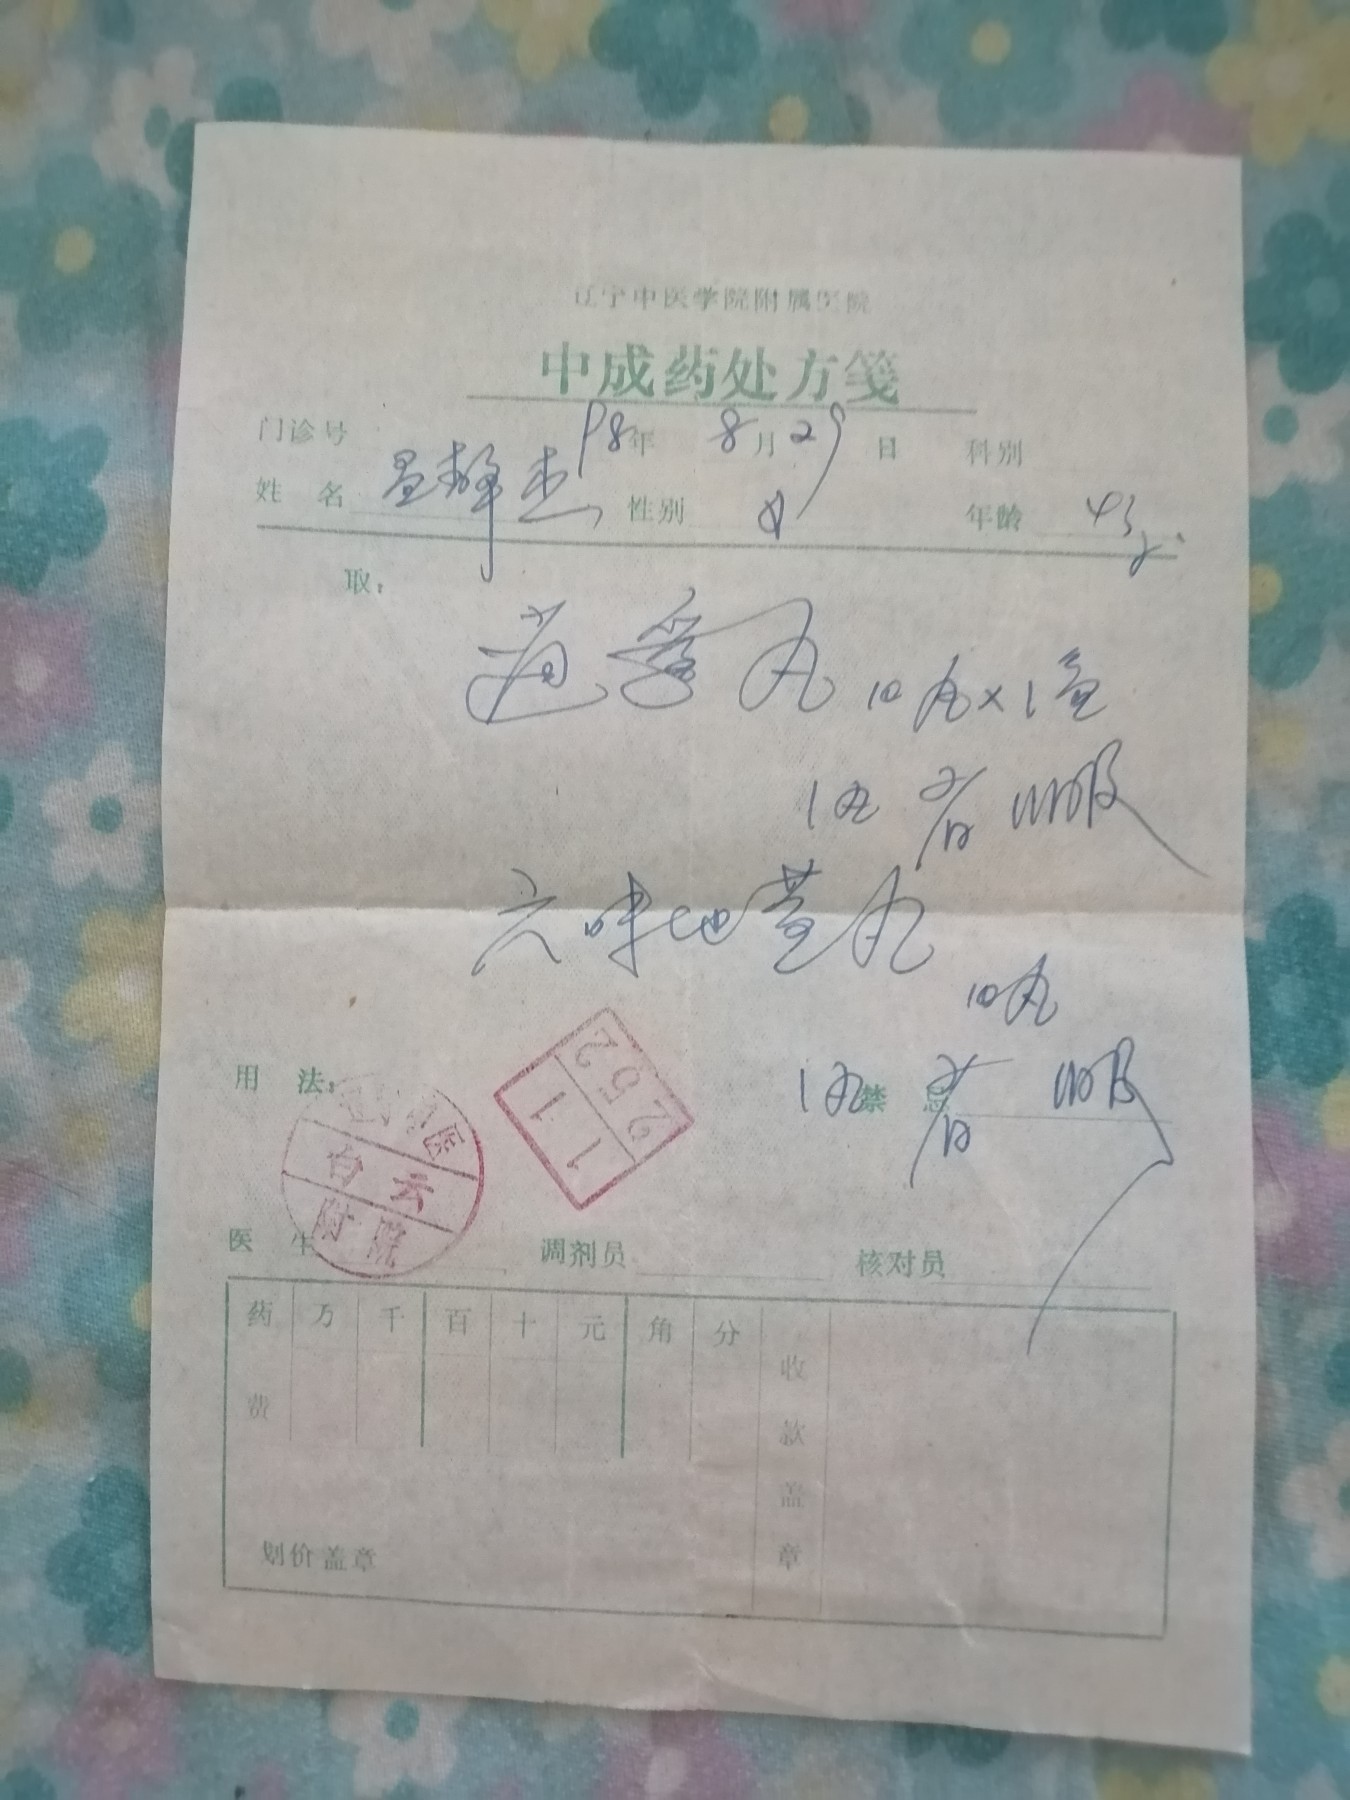 辽宁中医学院附属医院
中成药处方笺
门诊号 98年 8月29日 科别
姓名 性别 女 年龄 43岁
取：
丸 10丸×1盒
1丸 晚服
六味地黄丸
10丸
用法： 1丸 禁忌 晚服
医
白云
附院
2252
11
医生 调剂员 核对员
药费 万 千 百 十 元 角 分 收款盖章
划价盖章